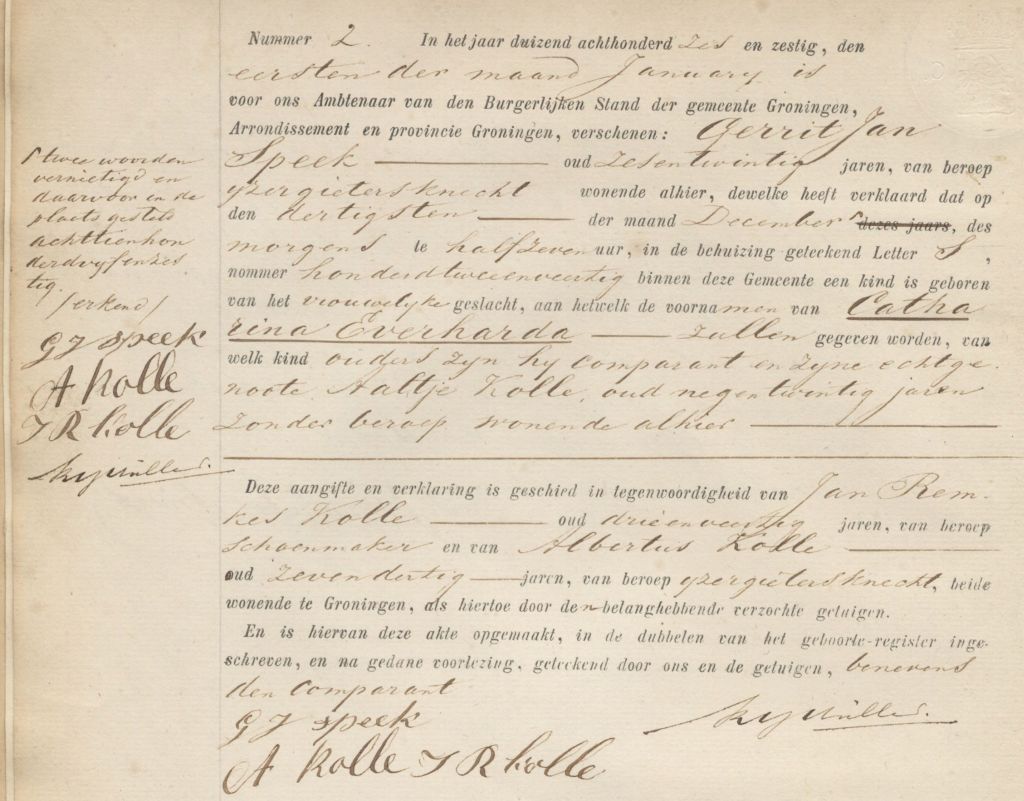 Nummer 2. In het jaar duizend achthonderd zes en zestig, den
eersten der maand January is
voor ons Ambtenaar van den Burgerlijken Stand der gemeente Groningen,
Arrondissement en provincie Groningen, verschenen: Gerrit Jan
Speek oud zesentwintig jaren, van beroep
yzergietersknecht wonende alhier, dewelke heeft verklaard dat op
den dertigsten der maand December dezes jaars, des
morgens te half zeven uur, in de behuizing geteekend Letter S,
nommer honderdtweeenveertig binnen deze Gemeente een kind is geboren
van het vrouwelyke geslacht, aan hetwelk de voornamen van Catha
rina Everharda zullen gegeven worden, van
welk kind ouders zyn hy comparant en zyne echtge-
noote Aaltje Kolle, oud negentwintig jaren
zonder beroep wonende alhier
Deze aangifte en verklaring is geschied in tegenwoordigheid van Jan Rem-
kes Kolle oud drieenveertig jaren, van beroep
schoenmaker en van Albertus Kolle
oud zevendertig jaren, van beroep yzergietersknecht, beide
wonende te Groningen, als hiertoe door den belanghebbende verzochte getuigen.
En is hiervan deze akte opgemaakt, in de dubbelen van het geboorte-register inge-
schreven, en na gedane voorlezing, geteekend door ons en de getuigen, benevens
den comparant
G J Speek
A Kolle J R Kolle
twee woorden
vernietigd en
daarvoor in de
plaats gesteld
achttienhon
derdvyfenzes
tig.
/erkend/
G J Speek
A Kolle
J R Kolle